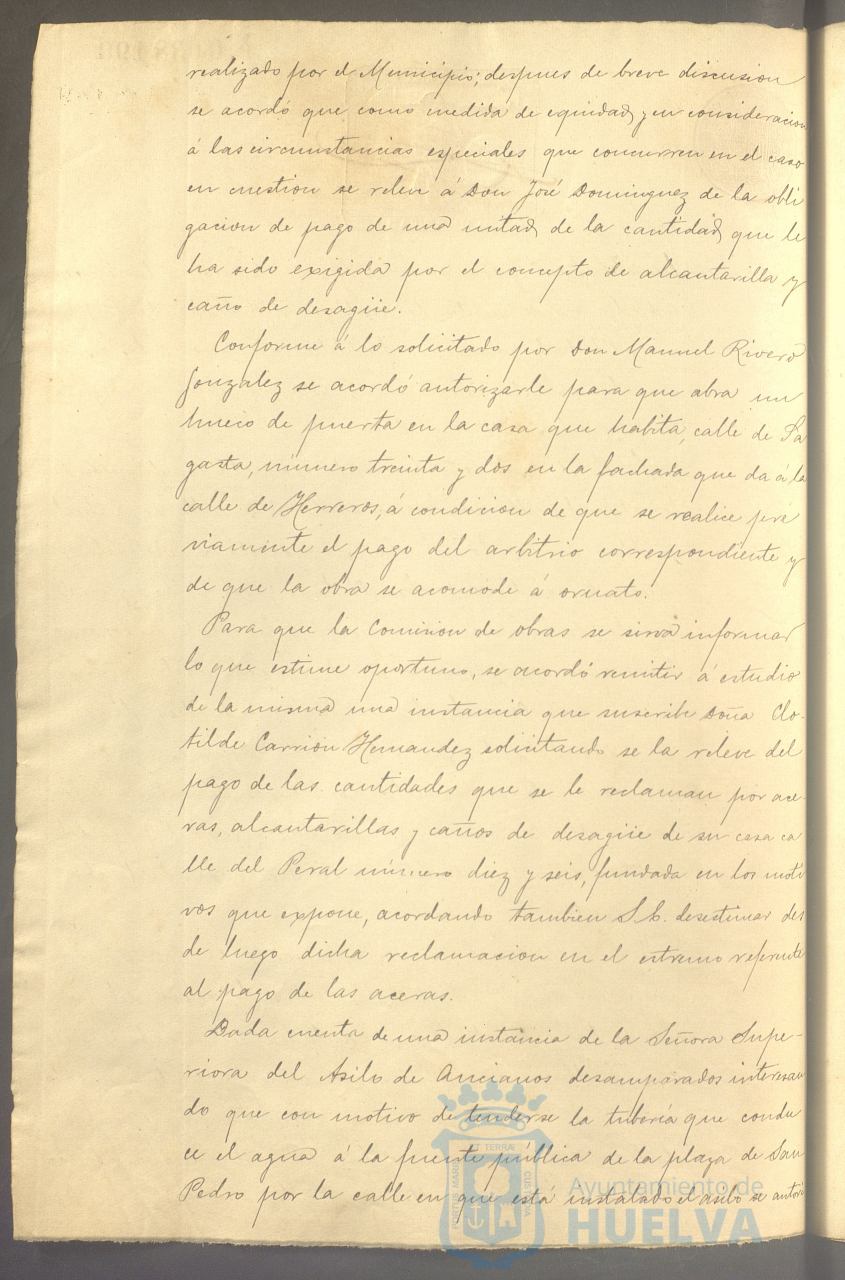 realizado por el Municipio; despues de breve discusion
se acordó que como medida de equidad y en consideracion
á las circunstancias especiales que concurren en el caso
en cuestion se releve á Don José Dominguez de la obli
gacion de pago de una mitad de la cantidad que le
ha sido exigida por el concepto de alcantarilla y
caño de desagüe.
Conforme á lo solicitado por Don Manuel Rivero
Gonzalez se acordó autorizarle para que abra un
hueco de puerta en la casa que habita, calle de Sa
gasta, número treinta y dos en la fachada que da á la
calle de Herreros, á condicion de que se realice pre
viamente el pago del arbitrio correspondiente y
de que la obra se acomode á ornato.
Para que la Comision de obras se sirva informar
lo que estime oportuno, se acordó remitir á estudio
de la misma una instancia que suscribe Doña Clo-
tilde Carrión Hernandez solicitando se la releve del
pago de las cantidades que se le reclaman por ace-
ras, alcantarillas y caños de desagüe de su casa ca
lle del Peral número diez y seis, fundada en los moti
vos que expone, acordando tambien S.E. desestimar des
de luego dicha reclamacion en el estremo referente
al pago de las aceras.
Dada cuenta de una instancia de la Señora Supe-
riora del Asilo de Ancianos desamparados interesan
do que con motivo de tenderse la tubería que condu
ce el agua á la fuente pública de la plaza de San
Pedro por la calle en que está instalado el asilo se autori
Ayuntamiento de
HUELVA